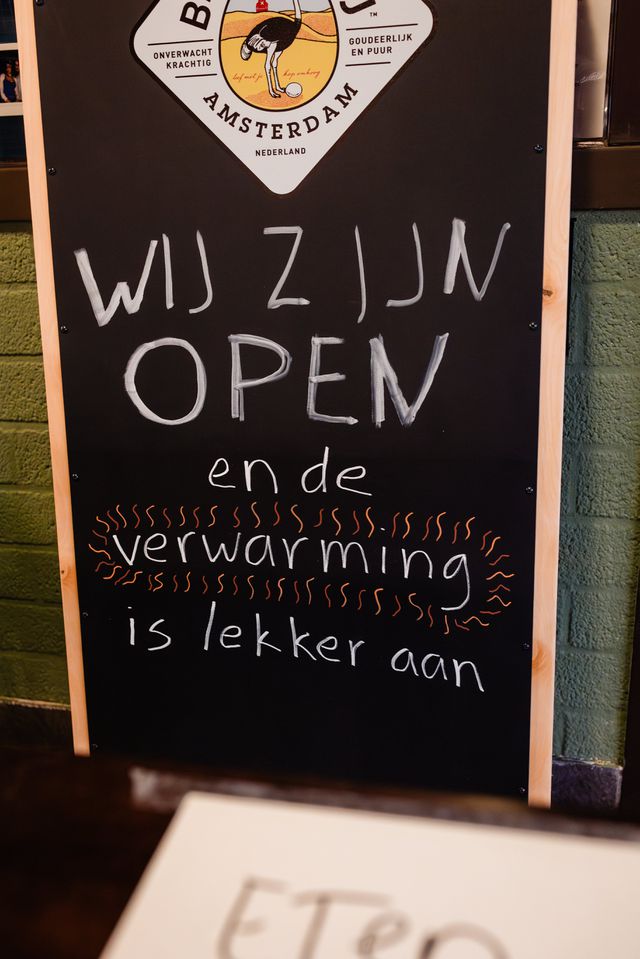 ONVERWACHT
KRACHTIG
GOUDEERLIJK
EN PUUR
lief met je kop omhoog
AMSTERDAM
NEDERLAND
WIJ ZIJN
OPEN
en de
verwarming
is lekker aan
ETEN